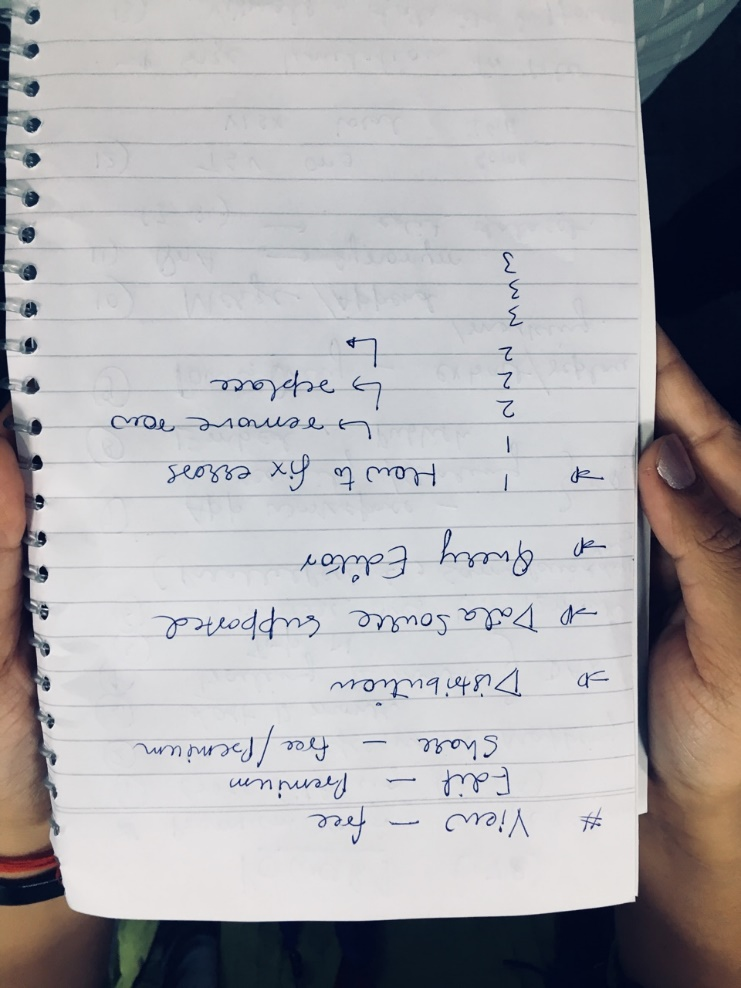 # View - free
Edit - Premium
Share - free/Premium
→ Distribution
→ Data Source Supported
→ Query Editor
→ 1 How to fix errors
1 ↳ remove row
2 ↳ replace
2 ↳
2
3
3
3